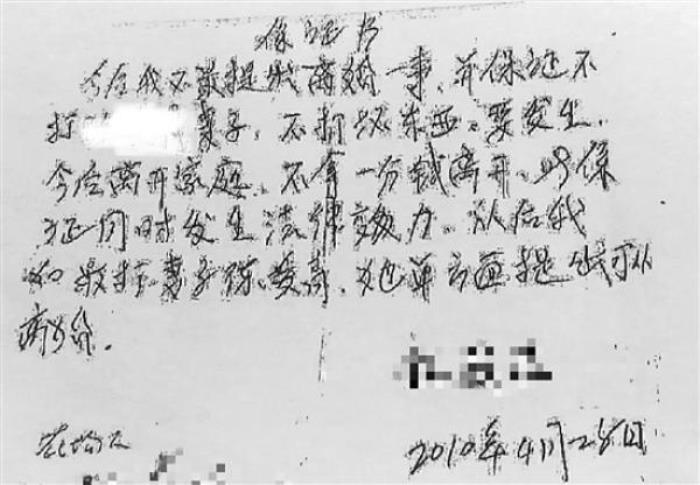 保证书
今后我不敢提出离婚一事，并保证不
打 妻子，不打坏东西。要发生，
今后离开家庭，不拿一分钱离开，此保
证同时发生法律效力。从后我
打妻子 ，她单方面提出可以
离婚。
2010年4月28日